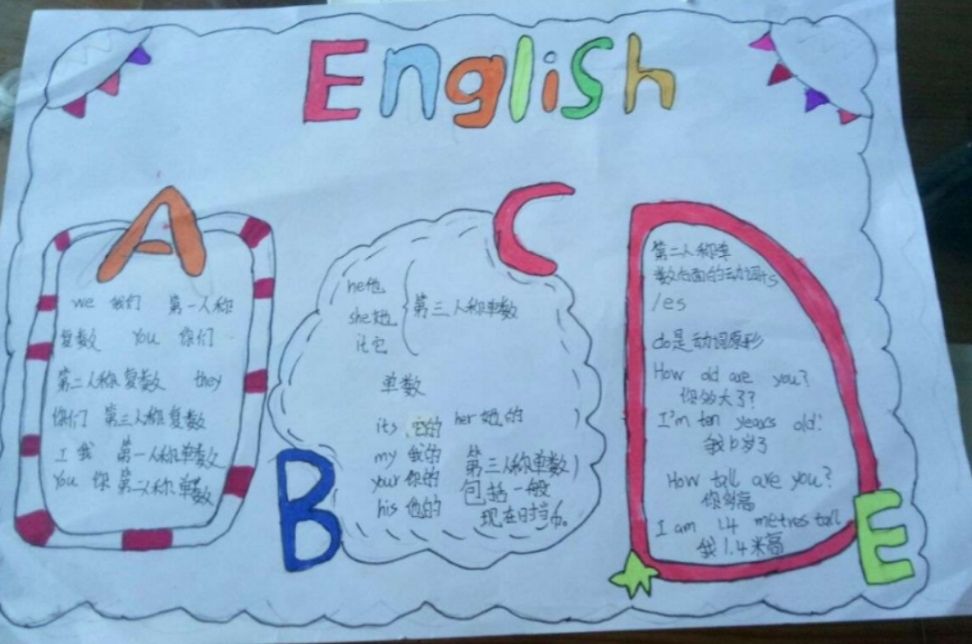 English
A
we 我们 第一人称
复数 You 你们
第二人称复数 they
你们 第三人称复数
I 我 第一人称单数
You 你 第二人称单数
B
C
he他
she她
it它
第三人称单数
单数
its 它的 her她的
my 我的
your你的
his他的
第三人称单数
包括一般
现在时
D
第二人称单
数后面的动词+s
/es
do是动词原形
How old are you?
你多大了?
I'm ten years old.
我10岁了
How tall are you?
你多高
I am 1.4 metres tall
我1.4米高
E